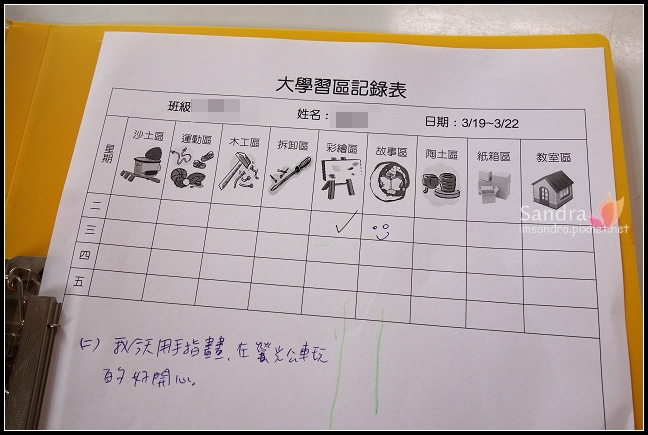 大學習區記錄表
班級 姓名： 日期：3/19~3/22
星期 沙土區 運動區 木工區 拆卸區 彩繪區 故事區 陶土區 紙箱區 教室區
二
三
四
五
Sandra
imsandra.pixnet.net
(二) 我今天用手指畫，在螢光公車玩
的好開心。